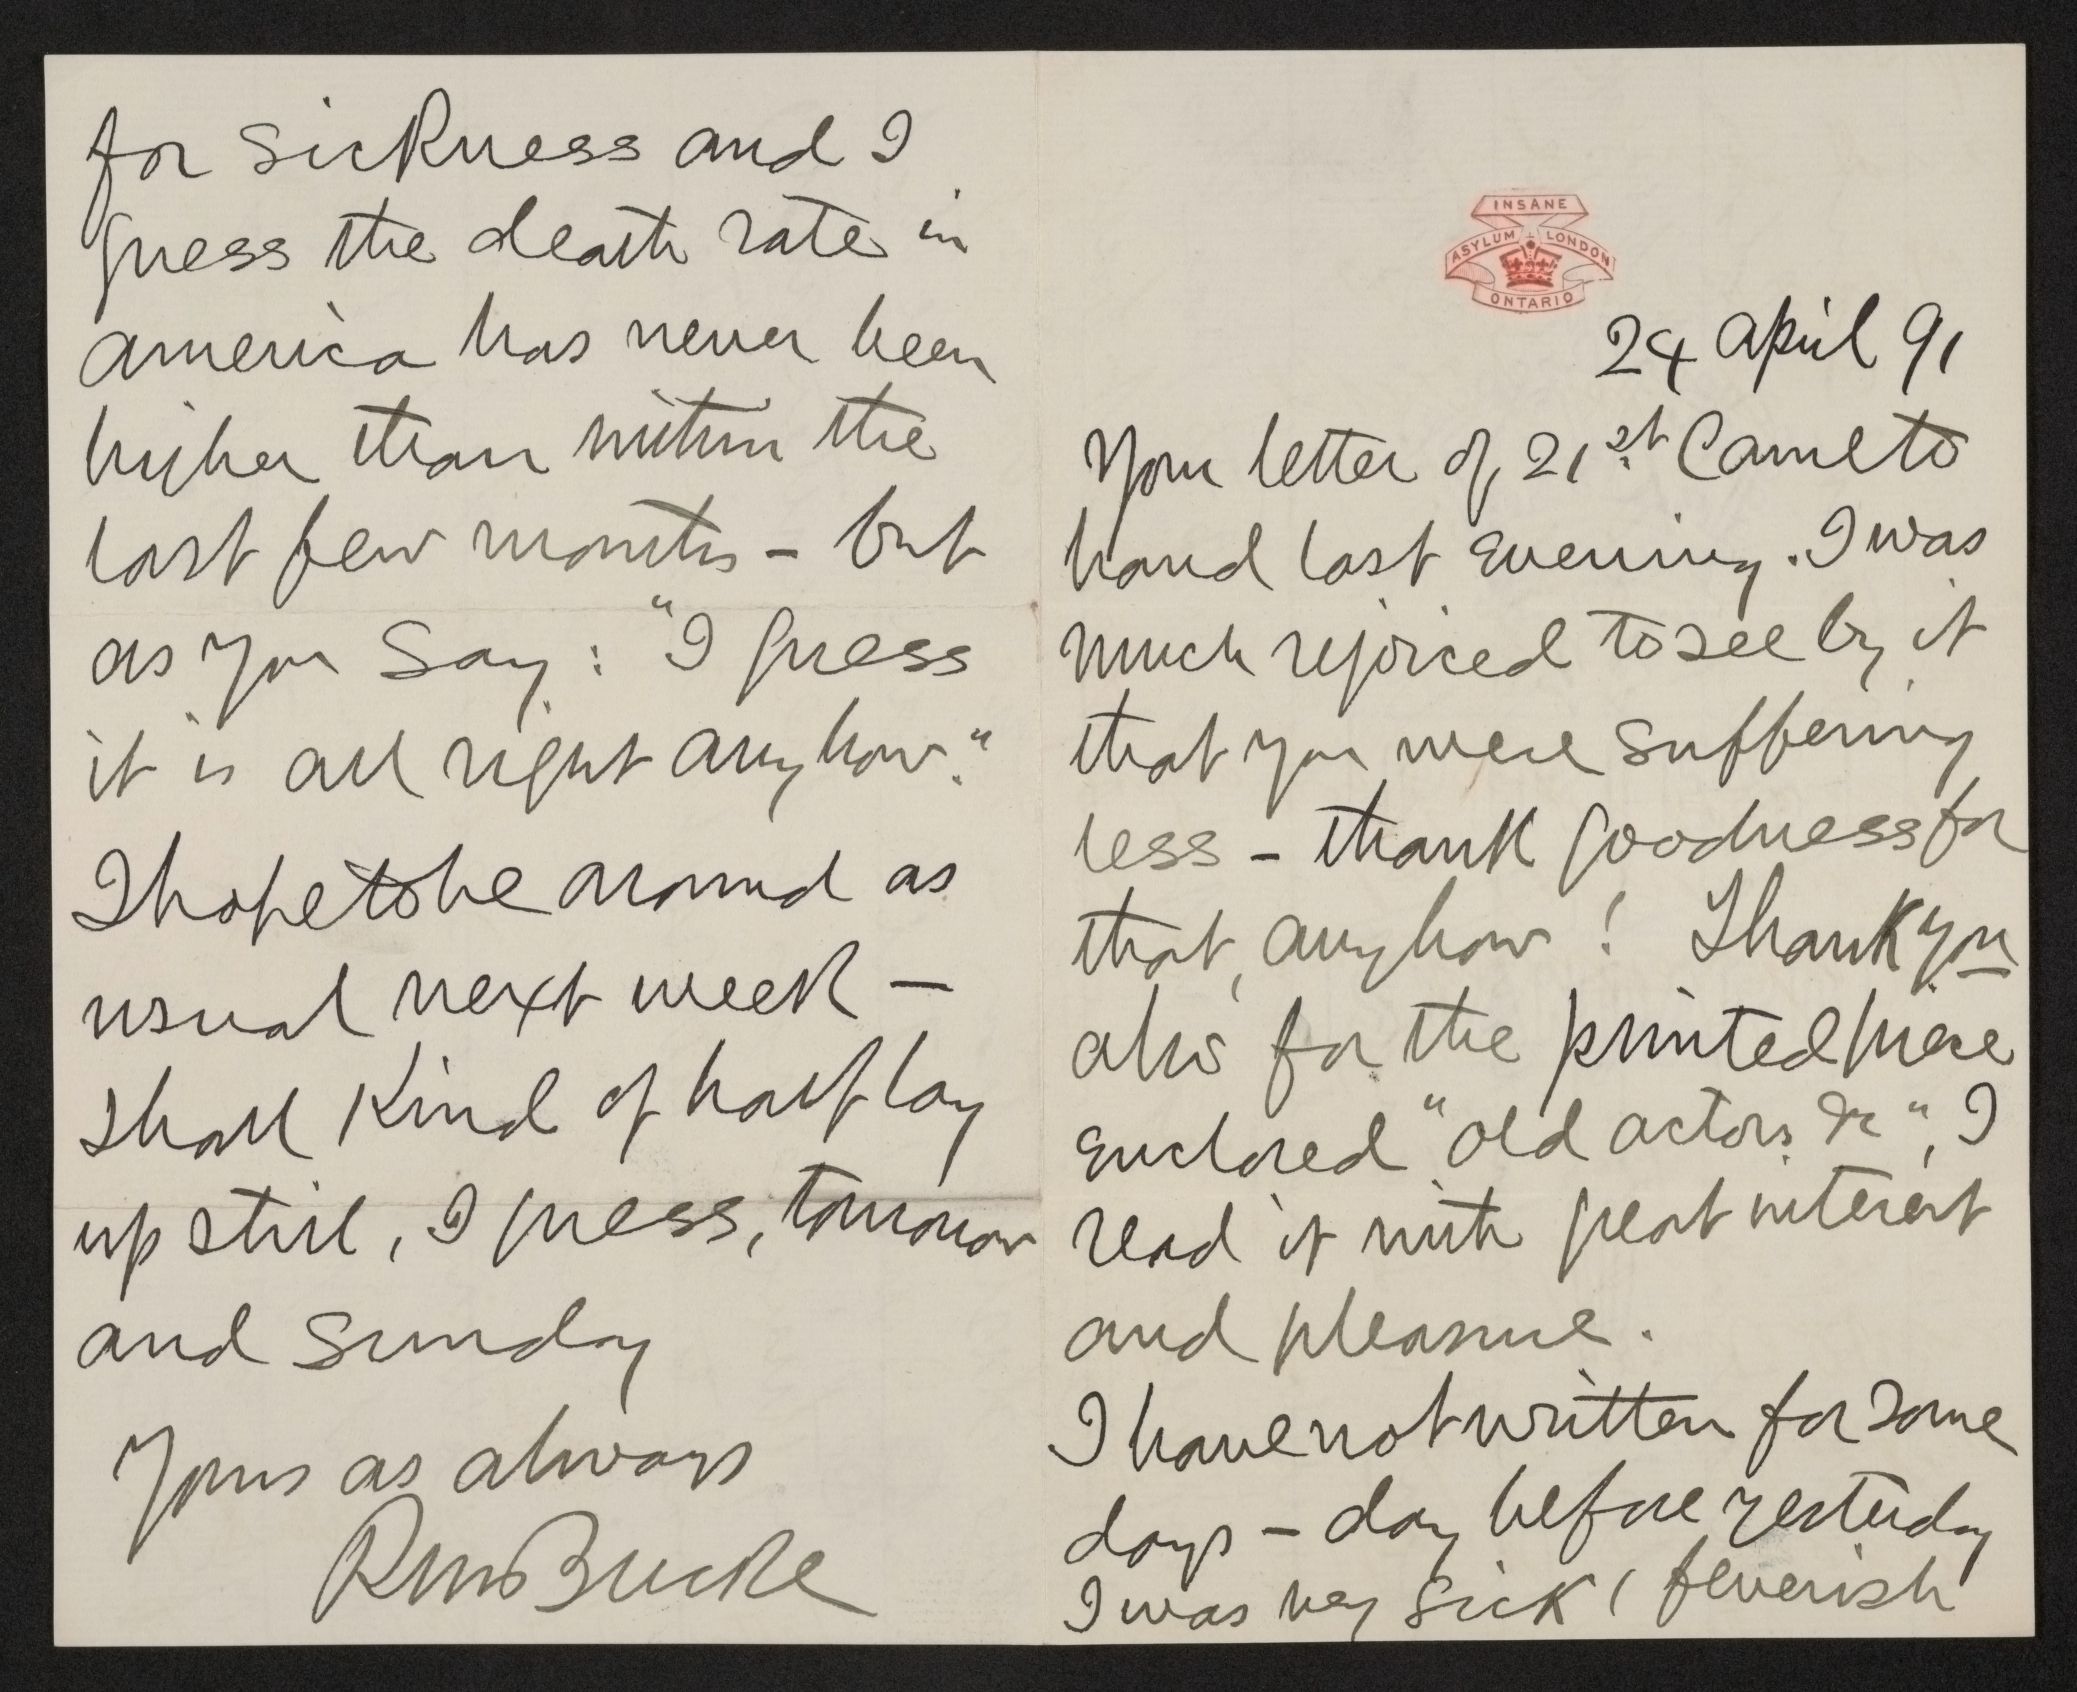 INSANE
ASYLUM LONDON
ONTARIO
24 April 91
Your letter of 21st came to
hand last evening. I was
much rejoiced to see by it
that you were suffering
less – thank goodness for
that, anyhow! Thank you
also for the printed piece
enclosed "Old actors &c", I
read it with great interest
and pleasure.
I have not written for some
days – day before yesterday
I was very sick (feverish
for sickness and I
guess the death rate in
America has never been
higher than within the
last few months – but
as you say: "I guess
it is all right anyhow."
I hope to be around as
usual next week –
shall kind of half lay
up still, I guess, tomorrow
and Sunday
Yours as always
RM Bucke